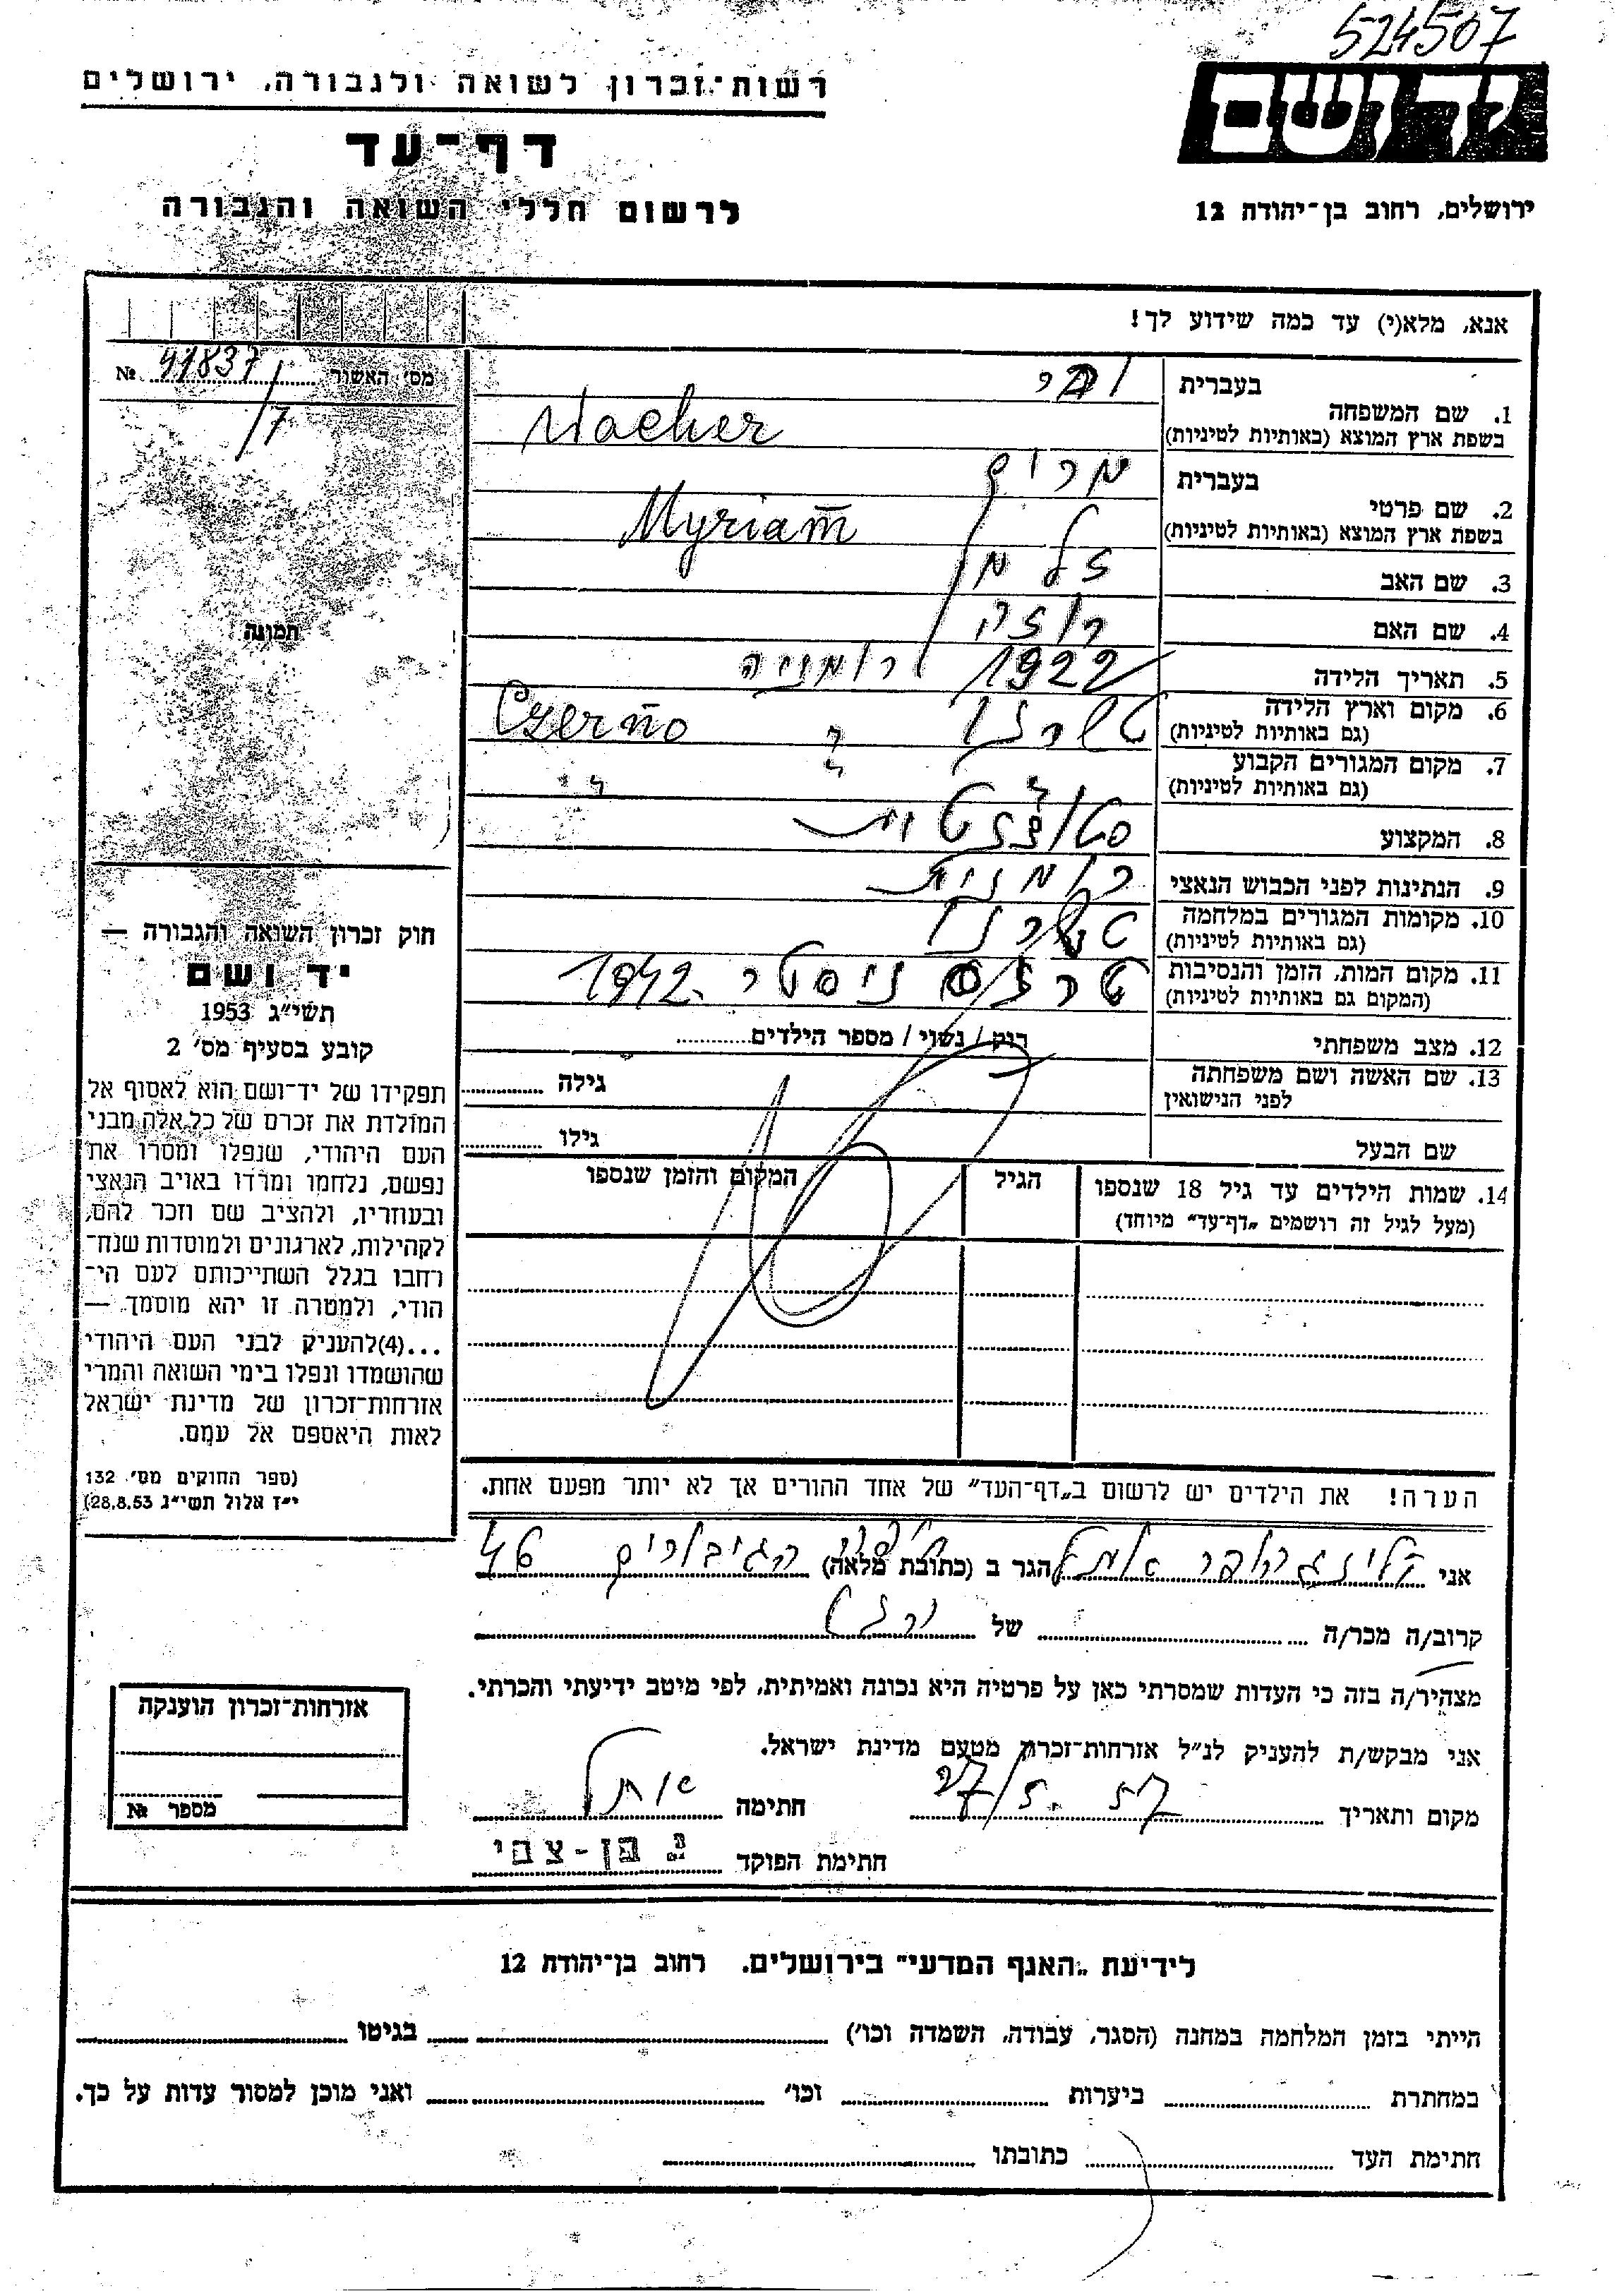 524507
יד ושם
רשות-זכרון לשואה ולגבורה, ירושלים
דף-עד
לרשום חללי השואה והגבורה
ירושלים, רחוב בן-יהודה 12
אנא, מלא(י) עד כמה שידוע לך!
מס' האשור 41837 №
/7
תמונה
1. שם המשפחה
בעברית
בשפת ארץ המוצא (באותיות לטיניות) Wacher
2. שם פרטי
בעברית מרים
בשפת ארץ המוצא (באותיות לטיניות) Myriam
3. שם האב זלמן
4. שם האם רוזה
5. תאריך הלידה 1922
6. מקום וארץ הלידה רומניה
(גם באותיות לטיניות) Czerno
7. מקום המגורים הקבוע
(גם באותיות לטיניות)
8. המקצוע סטודנטית
9. הנתינות לפני הכבוש הנאצי רומנית
10. מקומות המגורים במלחמה
(גם באותיות לטיניות)
11. מקום המות, הזמן והנסיבות טרנסניסטר 1942
(המקום גם באותיות לטיניות)
12. מצב משפחתי רוק / נשוי / מספר הילדים
13. שם האשה ושם משפחתה גילה
לפני הנישואין
שם הבעל גילו
14. שמות הילדים עד גיל 18 שנספו הגיל המקום והזמן שנספו
(מעל לגיל זה רושמים „דף-עד" מיוחד)
הערה! את הילדים יש לרשום ב„דף-העד" של אחד ההורים אך לא יותר מפעם אחת.
חוק זכרון השואה והגבורה —
יד ושם
תשי"ג 1953
קובע בסעיף מס' 2
תפקידו של יד-ושם הוא לאסוף אל
המולדת את זכרם של כל אלה מבני
העם היהודי, שנפלו ומסרו את
נפשם, נלחמו ומרדו באויב הנאצי
ובעוזריו, ולהציב שם וזכר להם,
לקהילות, לארגונים ולמוסדות שנח-
רחבו בגלל השתייכותם לעם הי-
הודי, ולמטרה זו יהא מוסמך —
...(4)להעניק לבני העם היהודי
שהושמדו ונפלו בימי השואה והמרי
אזרחות-זכרון של מדינת ישראל
לאות היאספם אל עמם.
(ספר החוקים מס' 132
י"ז אלול תשי"ג 28.8.53)
אני הגר ב (כתובת מלאה) חיפה הגיבורים 46
קרוב/ה מכר/ה של
מצהיר/ה בזה כי העדות שמסרתי כאן על פרטיה היא נכונה ואמיתית, לפי מיטב ידיעתי והכרתי.
אני מבקש/ת להעניק לנ"ל אזרחות-זכרון מטעם מדינת ישראל.
מקום ותאריך 57 .5/27 חתימה
חתימת הפוקד נ. בן-צבי
אזרחות-זכרון הוענקה
מספר №
לידיעת „האגף המדעי" בירושלים. רחוב בן-יהודה 12
הייתי בזמן המלחמה במחנה (הסגר, עבודה, השמדה וכו') בגיטו
במחתרת ביערות וכו' ואני מוכן למסור עדות על כך.
חתימת העד כתובתו